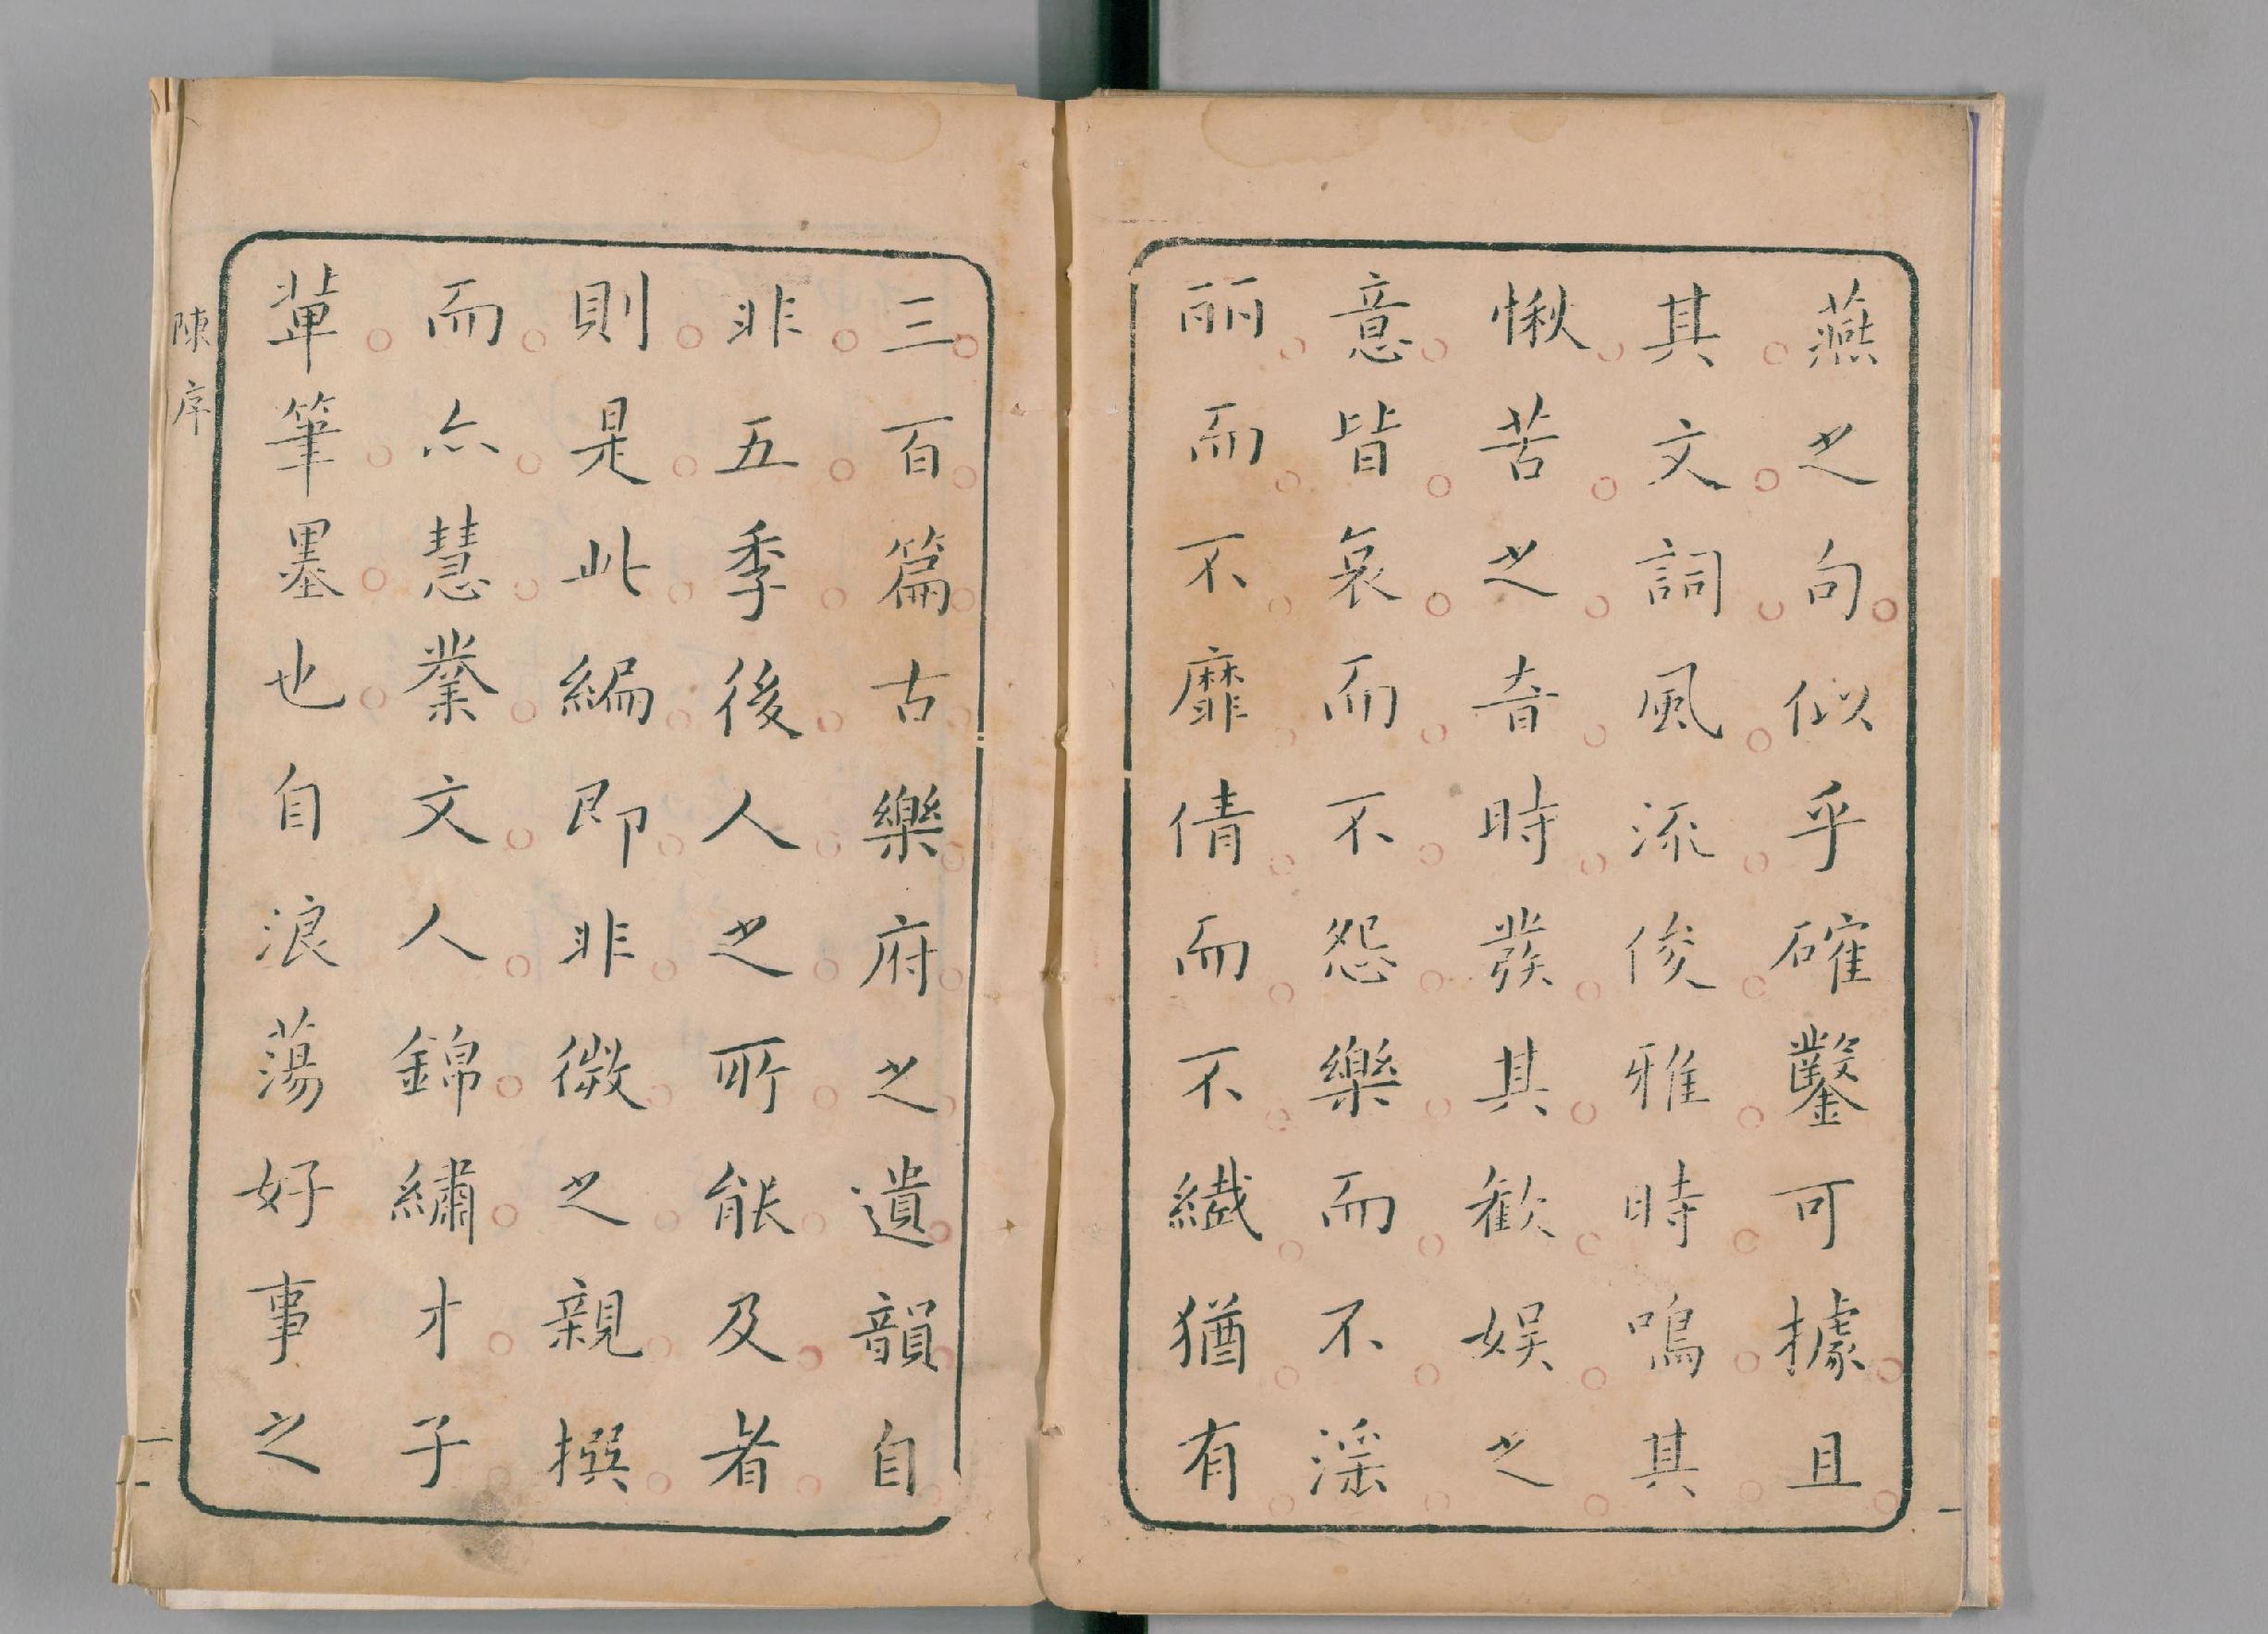 燕之句似乎確鑿可據且
其文詞風流俊雅時鳴其
愀苦之音時發其歡娛之
意皆哀而不怨樂而不淫
丽而不靡倩而不纖猶有
三百篇古樂府之遺韻自
非五季後人之所能及者
則是此編即非微之親撰
而亦慧業文人錦繡才子
輩筆墨也自浪蕩好事之
陳序